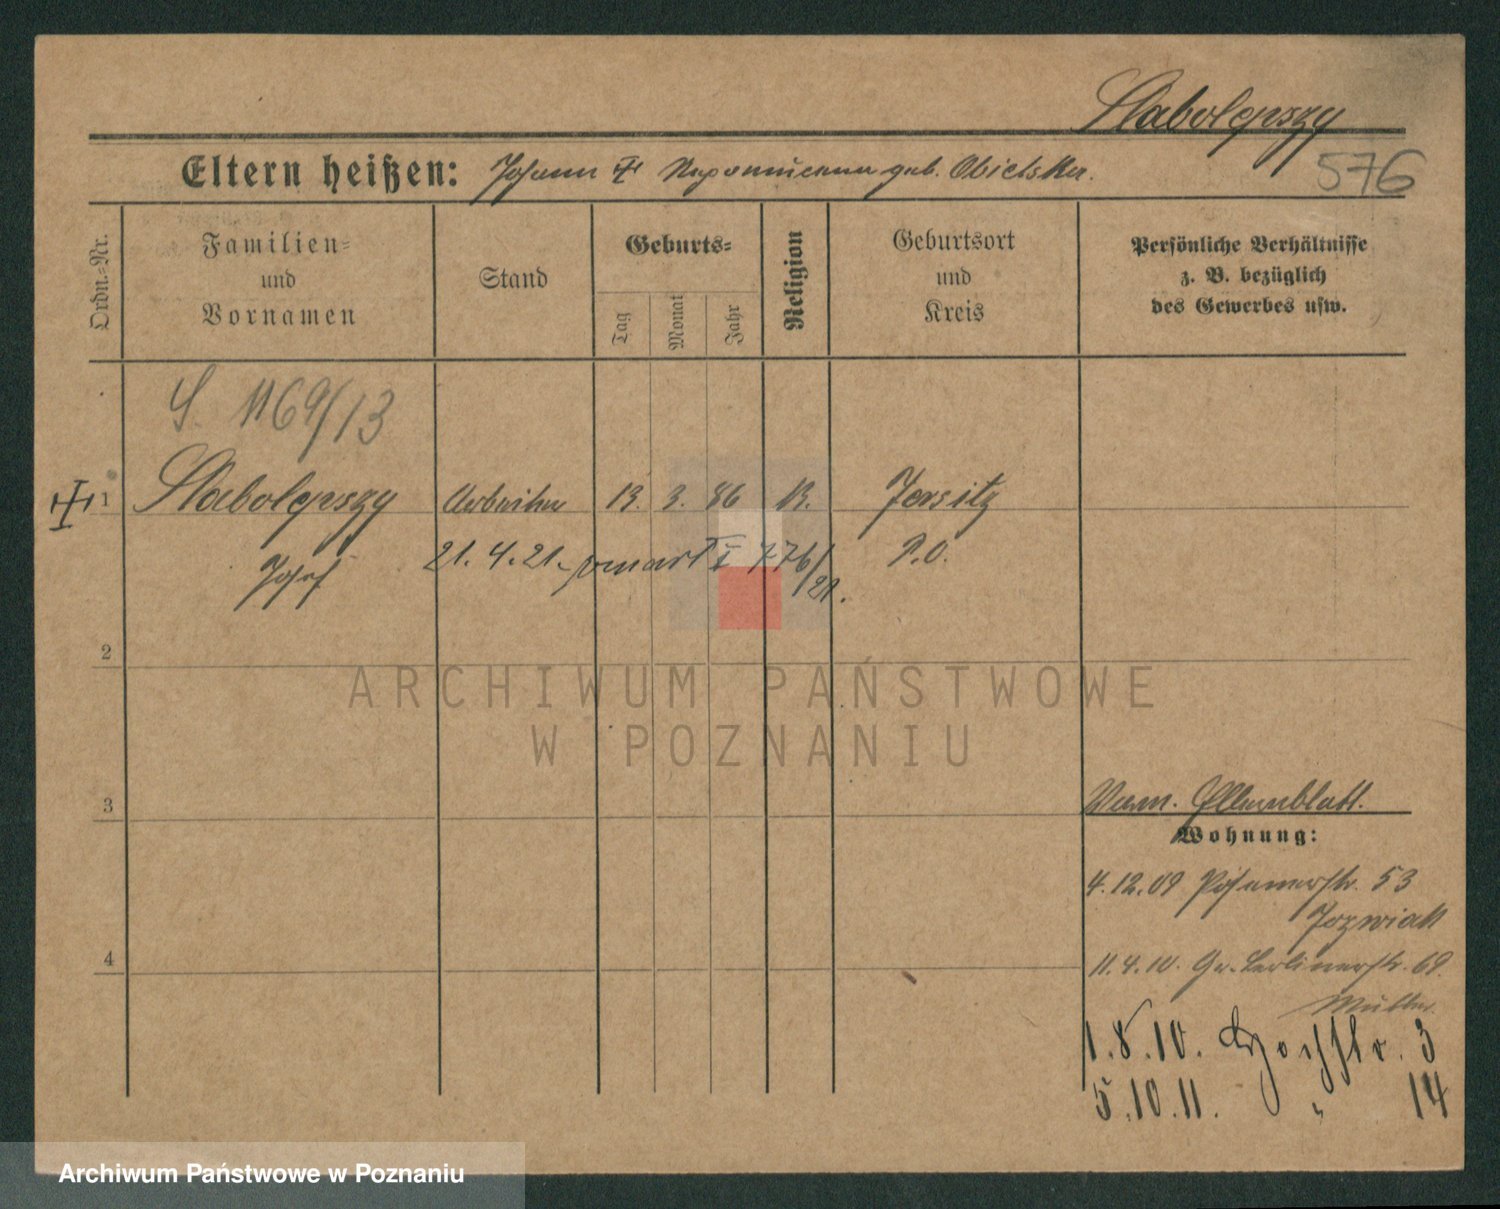 Slabolepszy
Eltern heißen: Johann geb.
576
Ordn.=Nr.
Familien=
und
Vornamen
Stand
Geburts=
Tag
Monat
Jahr
Religion
Geburtsort
und
Kreis
Persönliche Verhältnisse
z. B. bezüglich
des Gewerbes usw.
S. 1169/13
1 Slabolepszy Arbeiter 13. 3. 86 K. Jersitz
Josef 21. 4. 21. I 776/21. P.O.
2
ARCHIWUM PAŃSTWOWE
W POZNANIU
3
Elternblatt.
Wohnung:
4.12.09 Posenerstr. 53
Jozwiak
4
11.4.10. Gr. Berlinerstr. 69.
Müller.
1.8.10. 3
5.10.11. " 14
Archiwum Państwowe w Poznaniu